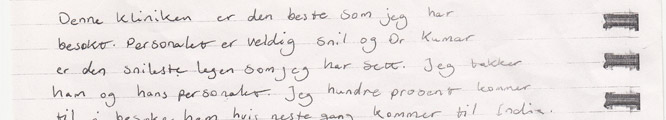 Denne kliniken er den beste som jeg har
besøkt. Personalet er veldig snil og Dr Kumar
er den snileste legen som jeg har sett. Jeg takker
ham og hans personalet. Jeg hundre prosent kommer
til å besøke ham hvis neste gang kommer til India.